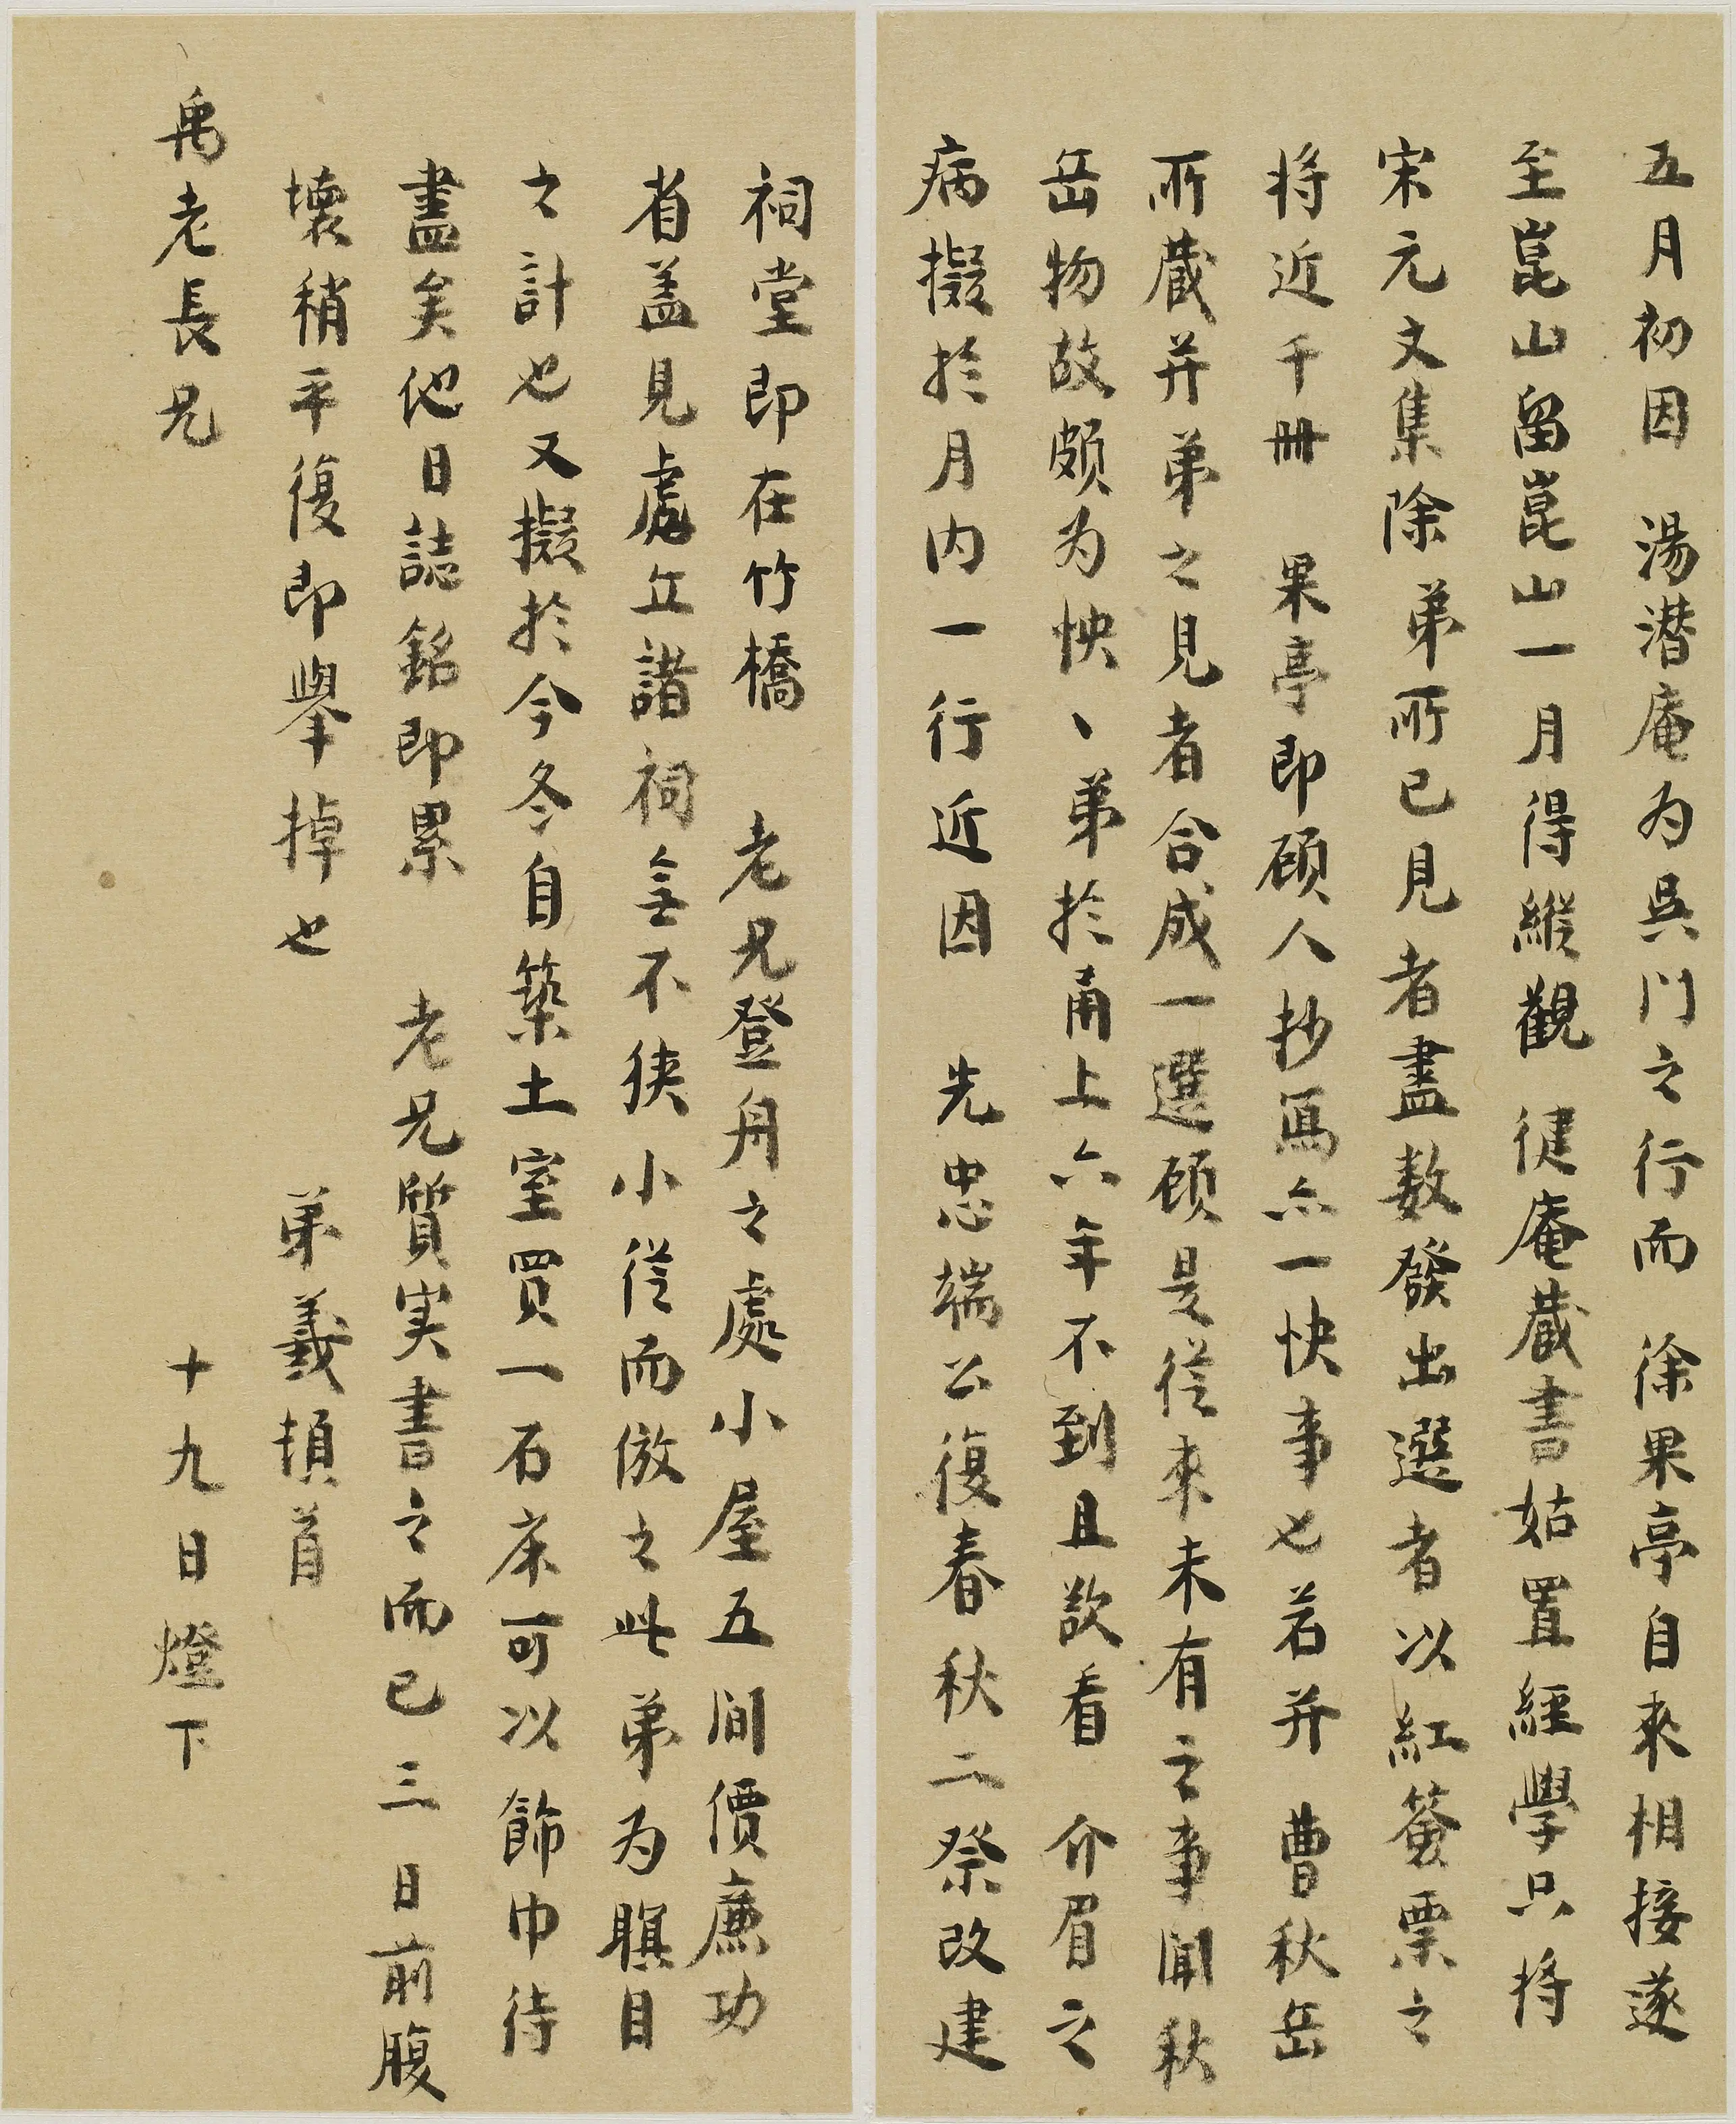 五月初因 湯潜庵为吳门之行而 徐果亭自來相接遂
至崑山留崑山一月得縱觀 健庵藏書姑置經學只将
宋元文集除弟所已見者盡数發出選者以紅簽票之
将近千冊 果亭即顾人抄寫亦一快事也若并 曹秋岳
所藏并弟之見者合成一選顾是從来未有之事闻秋
岳物故颇为怏〻弟於甬上六年不到且欲看 介眉之
病擬於月内一行近因 先忠端公復春秋二祭改建
祠堂即在竹橋 老兄登舟之處小屋五间價廉功
省盖見處立諸祠無不狭小從而倣之此弟为瞑目
之計也又擬於今冬自築土室買一石床可以飾巾待
盡矣他日誌銘即累 老兄質实書之而已三日前腹
壞稍平復即舉掉也 弟義頓首
禹老長兄 十九日燈下